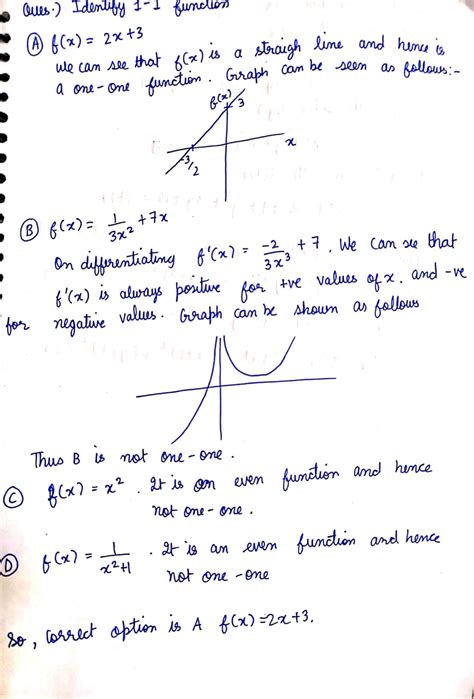 Ques.) Identify 1-1 function
(A) f(x) = 2x+3
We can see that f(x) is a straigh line and hence is
a one-one function. Graph can be seen as follows:-
f(x)
3
x
-3/2
(B) f(x) = 1/3x² + 7x
On differentiating f'(x) = -2/3x³ + 7. We can see that
f'(x) is always positive for +ve values of x. and -ve
for negative values. Graph can be shown as follows
Thus B is not one-one.
(C) f(x) = x². It is an even function and hence
not one-one.
(D) f(x) = 1/x²+1 . It is an even function and hence
not one-one
So, correct option is A f(x)=2x+3.